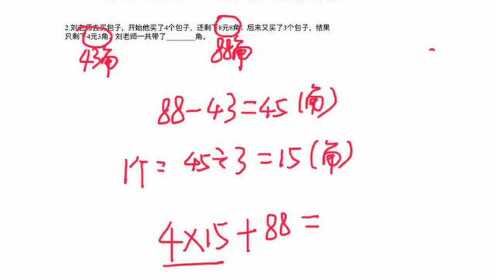 2.刘老师去买包子，开始他买了4个包子，还剩下8元8角；后来又买了3个包子，结果
只剩了4元3角，刘老师一共带了________角。
43角 88角
88-43=45(角)
1个=45÷3=15(角)
4×15+88=